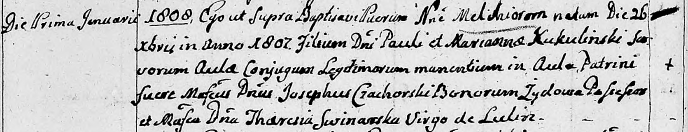 Die Prima Januarii 1808. Ego ut Supra Baptisavi Puerum Nne Melchiorem natum Die 26
xbris in Anno 1807 Filium Dni Pauli et Mariannæ Kukulinski
vorum Aulæ Conjugum Legitimorum manentium in Aula, Patrini
fuere Josephus Czachorski Bonorum Zydowa
et Dna Theresia Swinarska Virgo de